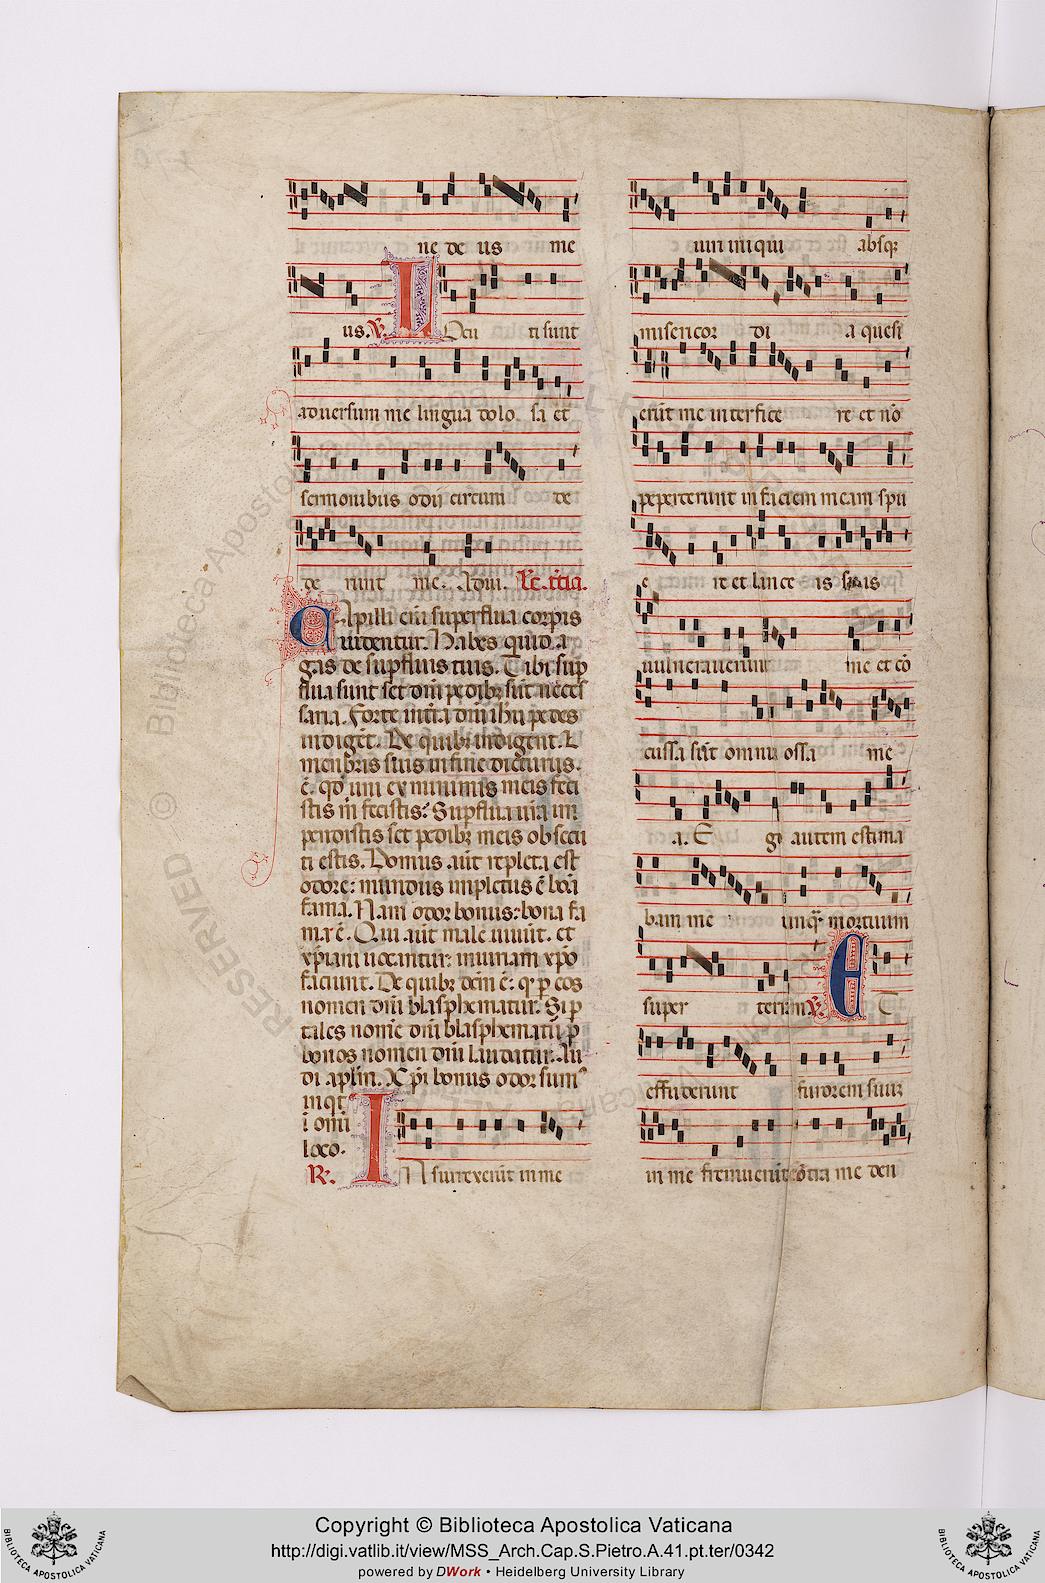 ne de us me
us. ℣. Locu ti sunt
aduersum me lingua dolo sa et
sermonibus odij circum de
de runt me. Adiu. Lc. tcia.
Capilli eni superflua corpis
uidentur. Habes quid a
gas de supfluis tuis. Tibi sup
flua sunt set dni pedibz sut neces
saria. Forte in tra dni ihu pedes
indiget. De quibz indigent.
menbris suis in fine dicturus
e. qd uni ex minimis meis feci
stis m fecistis. Superflua uia im
pendistis set pedibz meis obsecu
ti estis. Domus aut repleta est
odore: mundus impletus e bona
fama. Nam odor bonus: bona fa
ma e. Qui aut male uiuut. et
xpiani uocantur: iniuriam xpo
faciunt. De quibz dcm e: q p eos
nomen dni blasphematur. Si p
tales nome dni blasphematur p
bonos nomen dni laudatur. Au
di aplm. X pi bonus odor sum
inqt
i omi
loco.
R. I Nsurrexerut in me
uiri iniqui absqz
misericor di a quesi
erut me interfice re et no
peperterunt in faciem meam spu
e re et lance is suis
uulnerauerunt me et co
cussa sut omnia ossa me
a. E go autem estima
bam me tamq mortuum
super terram. ℣. E T
effuderunt furorem suum
in me fremuerut cotra me den
Copyright © Biblioteca Apostolica Vaticana
http://digi.vatlib.it/view/MSS_Arch.Cap.S.Pietro.A.41.pt.ter/0342
powered by DWork • Heidelberg University Library